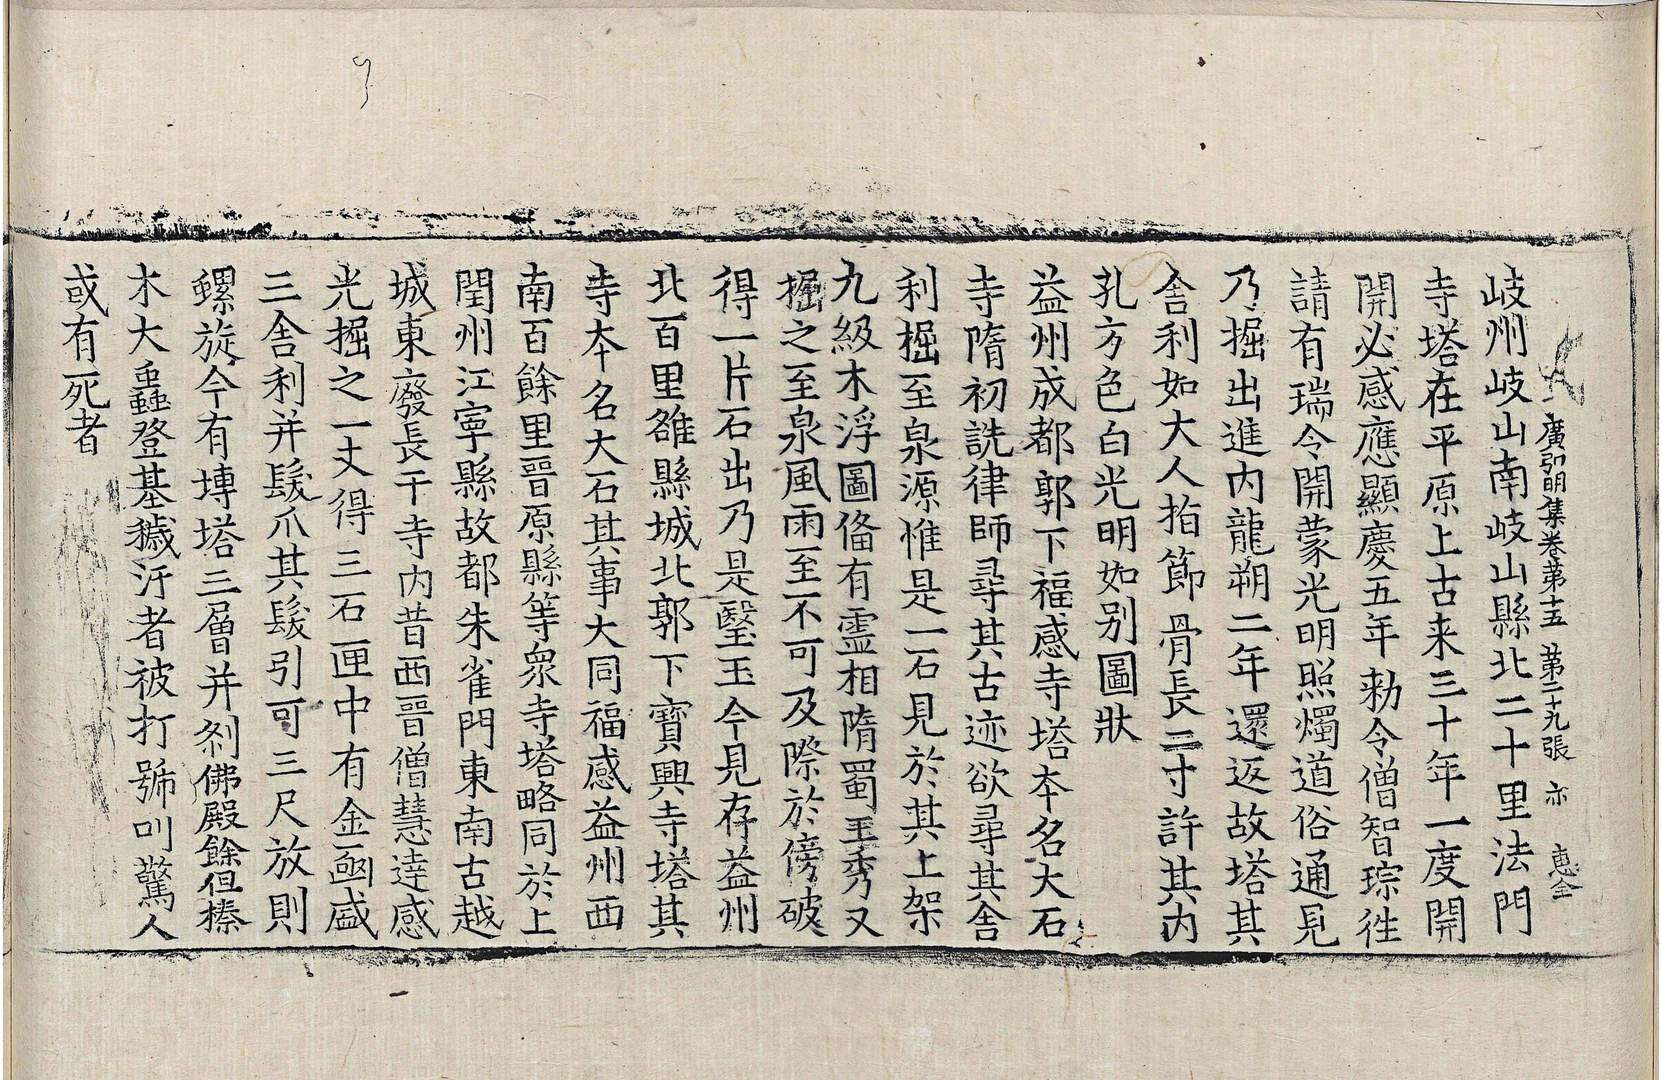 廣弘明集卷第十五 第二十九張 亦 惠全
岐州岐山南岐山縣北二十里法門
寺塔在平原上古来三十年一度開
開必感應顯慶五年勑令僧智琮徃
請有瑞令開蒙光明照燭道俗通見
乃掘出進内龍朔二年還返故塔其
舎利如大人指節骨長二寸許其内
孔方色白光明如别圖狀
益州成都郭下福感寺塔本名大石
寺隋初詵律師尋其古迹欲尋其舎
利掘至泉源惟是一石見於其上架
九級木浮圖俻有靈相隋蜀王秀又
掘之至泉風雨至不可及際於傍破
得一片石出乃是瑿玉今見存益州
北百里雒縣城北郭下寶興寺塔其
寺本名大石其事大同福感益州西
南百餘里晉原縣等衆寺塔略同於上
閏州江寧縣故都朱雀門東南古越
城東廢長干寺内昔西晉僧慧逹感
光掘之一丈得三石匣中有金凾盛
三舎利并髮爪其髮引可三尺放則
螺旋今有塼塔三層并刹佛殿餘但榛
木大蟲登基穢汙者被打號叫驚人
或有死者